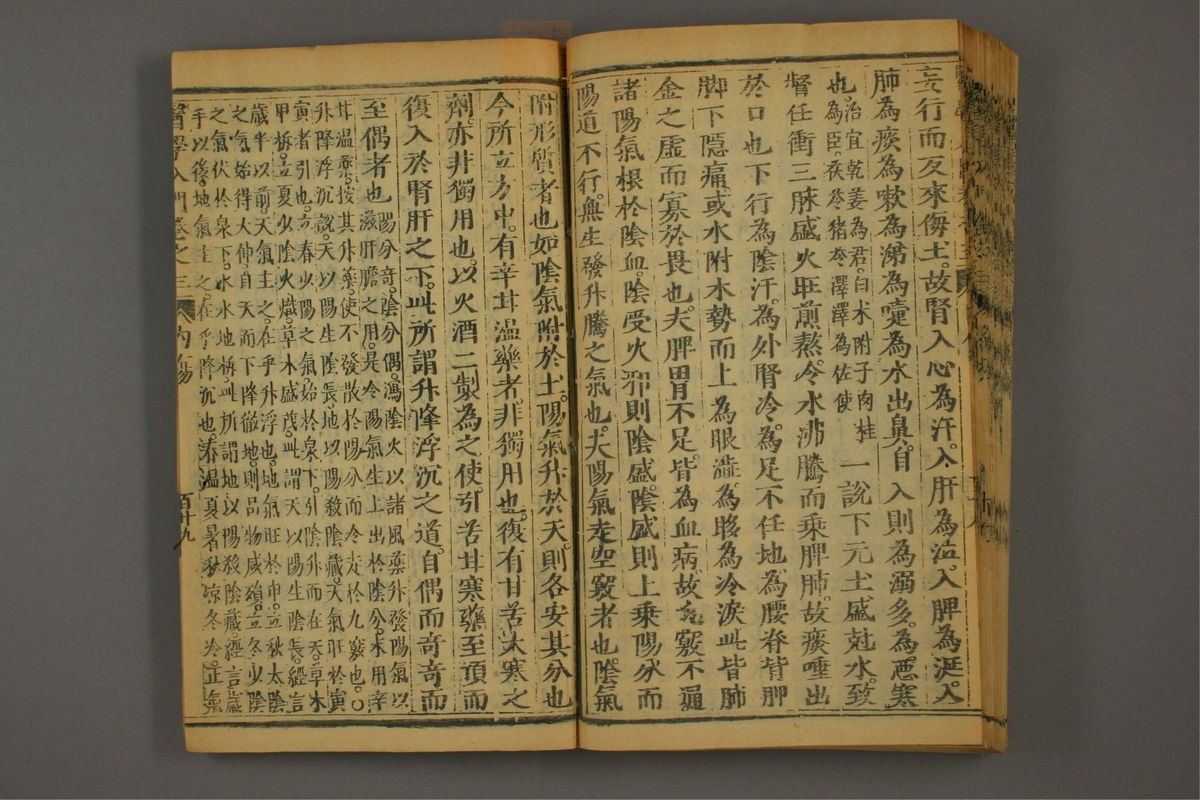 妄行而反來傷土故腎入心為汗入肝為泣入脾為涎入
肺為痰為嗽為涕為嚏為水出鼻自入則為溺多為惡寒
也治宜乾姜為君白术附子肉桂
為臣茯苓猪苓澤瀉為佐使
一說下元土盛尅水致
督任衝三脉盛火旺煎熬令水沸騰而乘脾肺故痰唾出
於口也下行為陰汗為外腎冷為足不任地為腰脊背胛
脚下隱痛或水附木勢而上為眼澁為眵為冷淚此皆肺
金之虛而寡於畏也夫脾胃不足皆為血病故九竅不通
諸陽氣根於陰血陰受火邪則陰盛陰盛則上乘陽分而
陽道不行無生發升騰之氣也夫陽氣走空竅者也陰氣
附形質者也如陰氣附於土陽氣升於天則各安其分也
今所立方中有辛甘溫藥者非獨用也復有甘苦大寒之
劑亦非獨用也以火酒二製為之使引苦甘寒藥至頂而
復入於腎肝之下此所謂升降浮沉之道自偶而奇奇而
至偶者也
陽分奇陰分偶瀉陰火以諸風藥升發陽氣以
滋肝膽之用是令陽氣生上出於陰分末用辛
甘溫藥接其升藥使不發散於陽分而令走於九竅也○
升降浮沉說天以陽生陰長地以陽殺陰藏天氣旺於寅
寅者引也立春少陽之氣始於泉下引陰升而在天草木
甲柝立夏少陰火熾草木盛茂此謂天以陽生陰長經言
歲半以前天氣主之在乎升浮也地氣旺於申立秋太陰
之氣始得大伸自天而下降徹地則品物咸殞立冬少陰
之氣伏於泉下水氷地柝此所謂地以陽殺陰藏經言歲
半以後地氣主之在乎降沉也春溫夏暑秋凉冬冷正氣
醫學入門卷之三
內傷
百十九